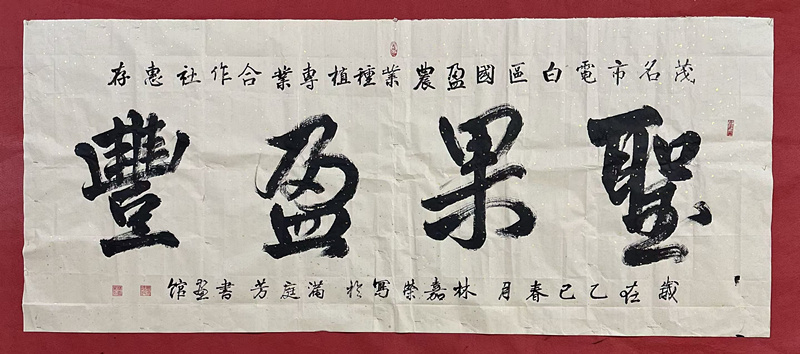 茂名市電白區國盈農業種植專業合作社惠存
聖果盈豐
歲在乙巳春月林嘉榮寫於滿庭芳書畫館